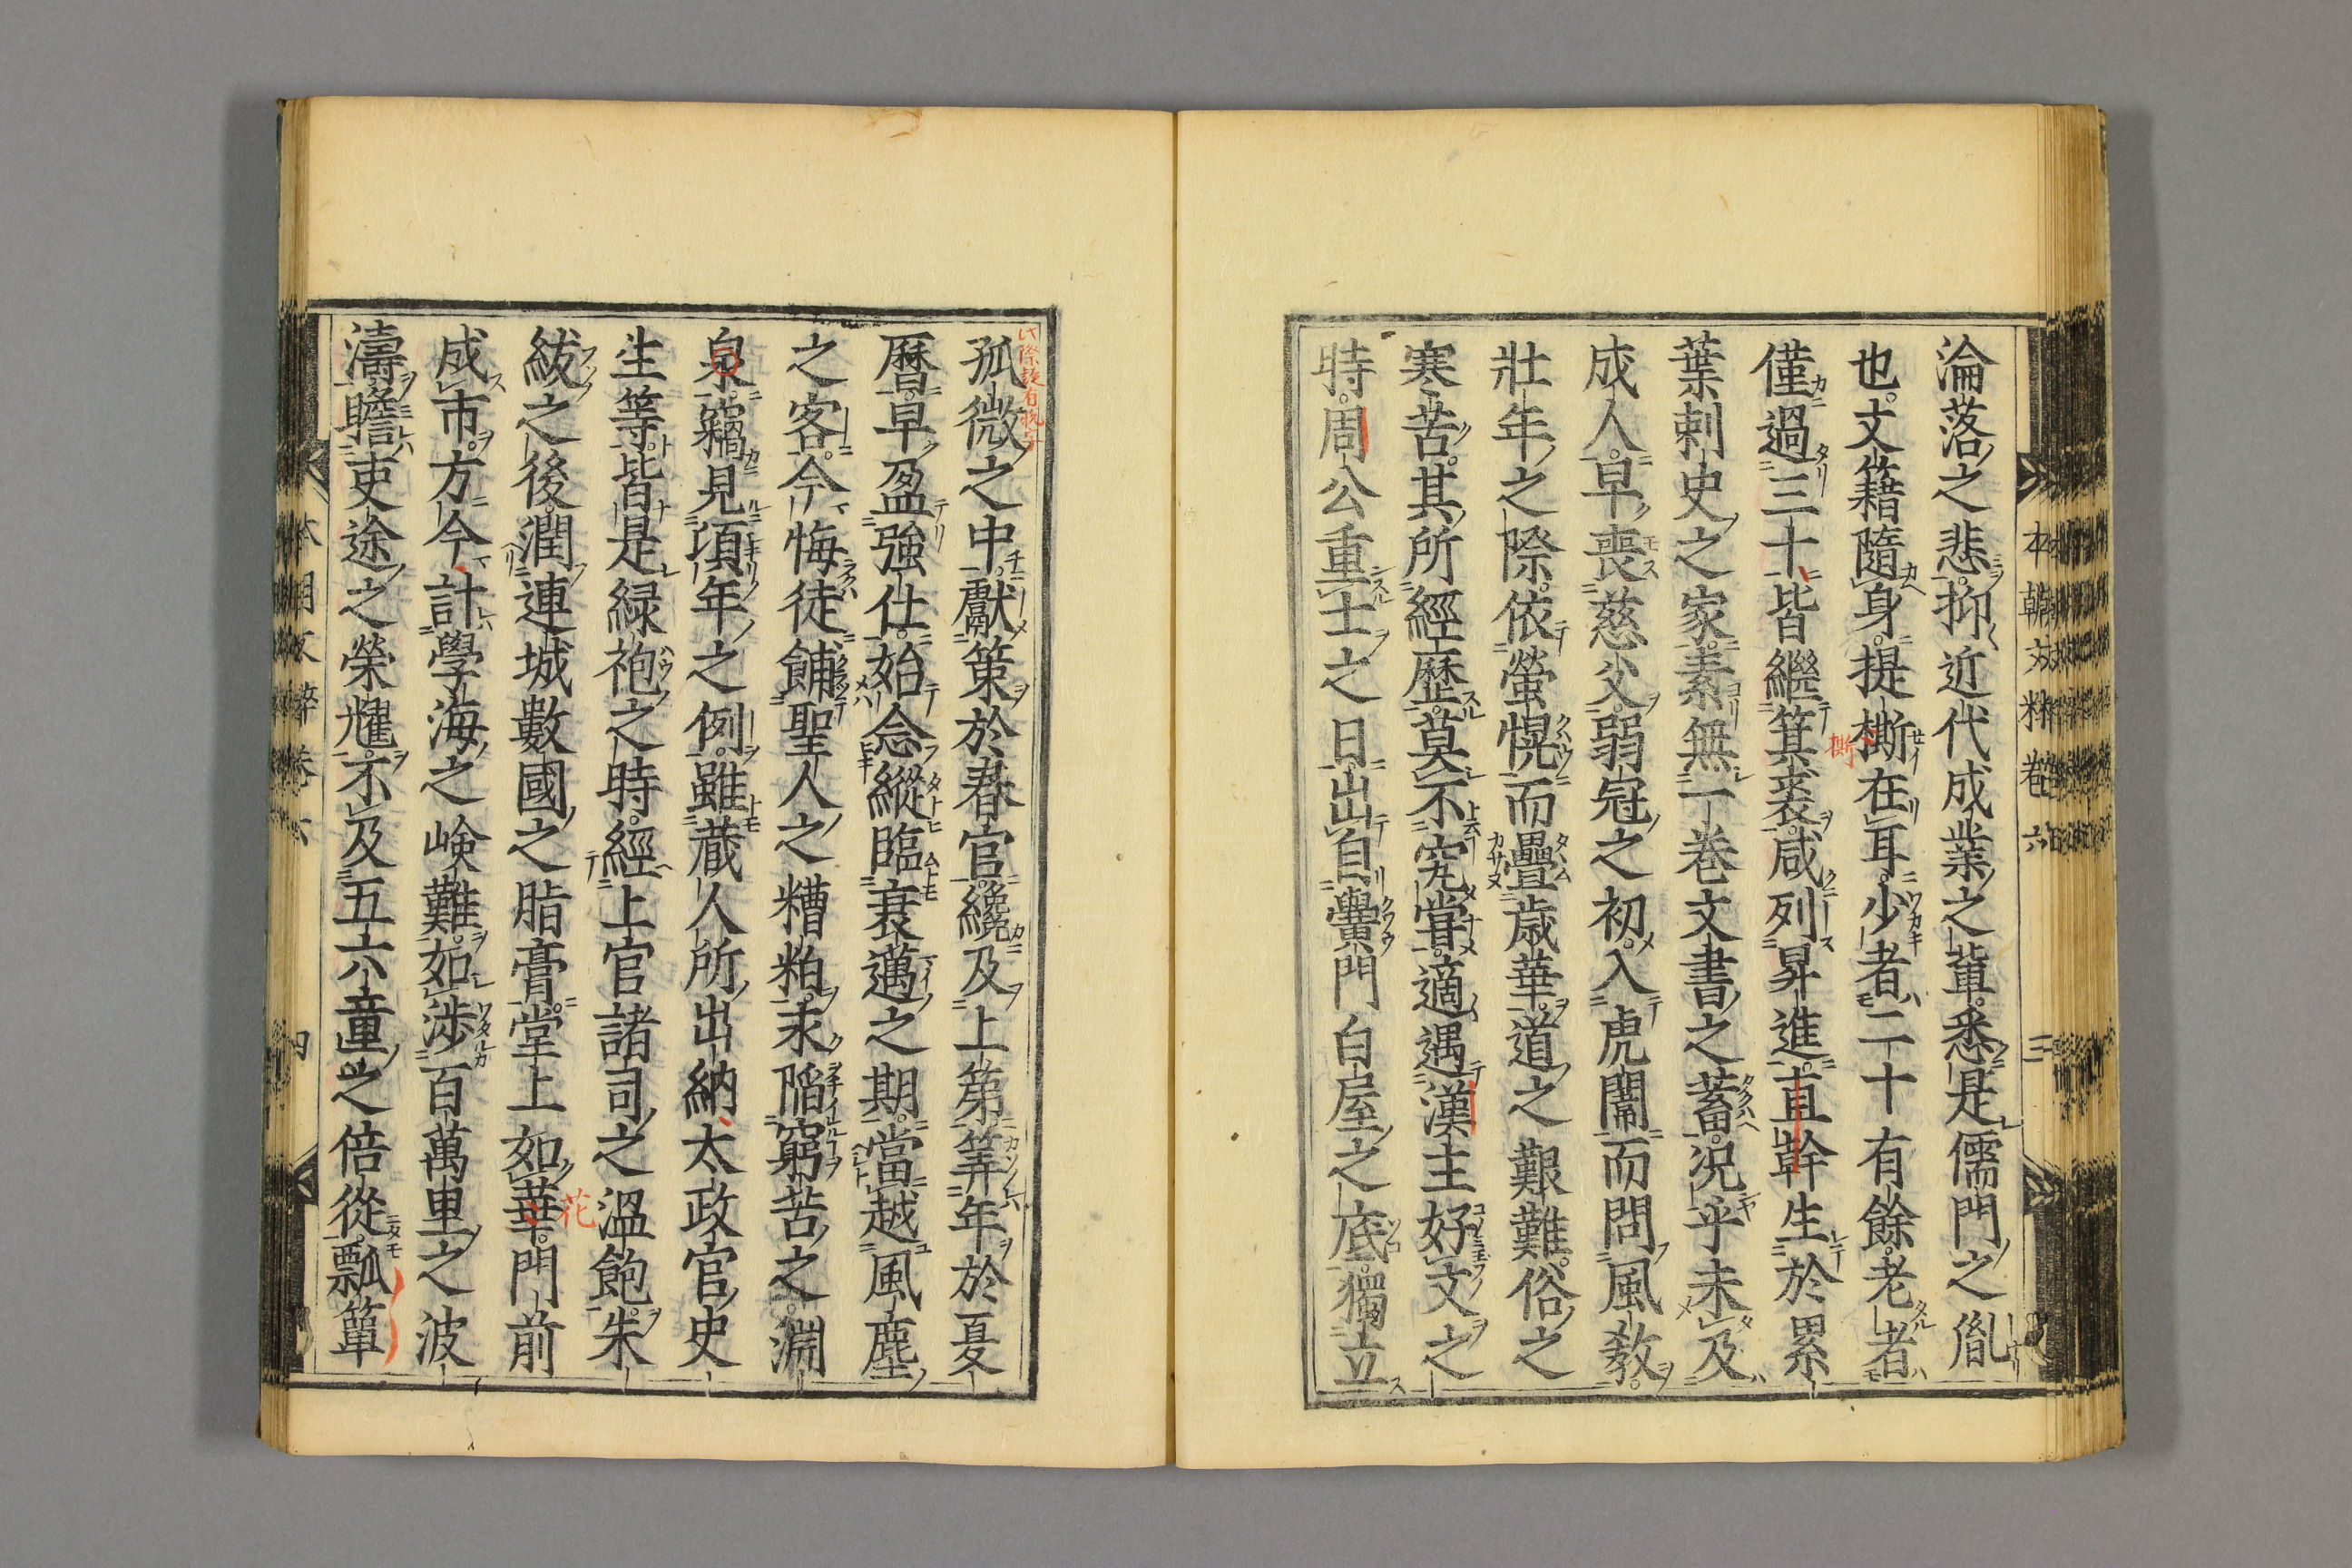 淪落之悲抑近代成業之輩悉是儒門之胤
也文籍隨身提撕在耳少者二十有餘老者
僅過三十皆繼箕裘咸列昇進直幹生於累
葉刺史之家素無一巻文書之蓄况乎未及
成人早喪慈父弱冠之初入虎闈而問風教
壯年之際依螢幌而疊歳華道之艱難俗之
寒苦其所經歴莫不究甞適遇漢主好文之
時周公重士之日出自黌門白屋之底獨立
孤微之中獻策於春官纔及上第筭年於夏
暦早盈強仕始念縱臨衰邁之期當越風塵
之客今悔徒餔聖人之糟粕永陷窮苦之淵
泉竊見頃年之例雖蔵人所出納太政官史
生等皆是緑袍之時經上官諸司之溫飽朱
紱之後潤連城數國之脂膏堂上如華門前
成市方今計學海之嶮難如渉百萬里之波
濤瞻吏途之榮耀不及五六童之倍從瓢簞
本朝文粹巻六
三
本朝文粹巻六
四
撕
花